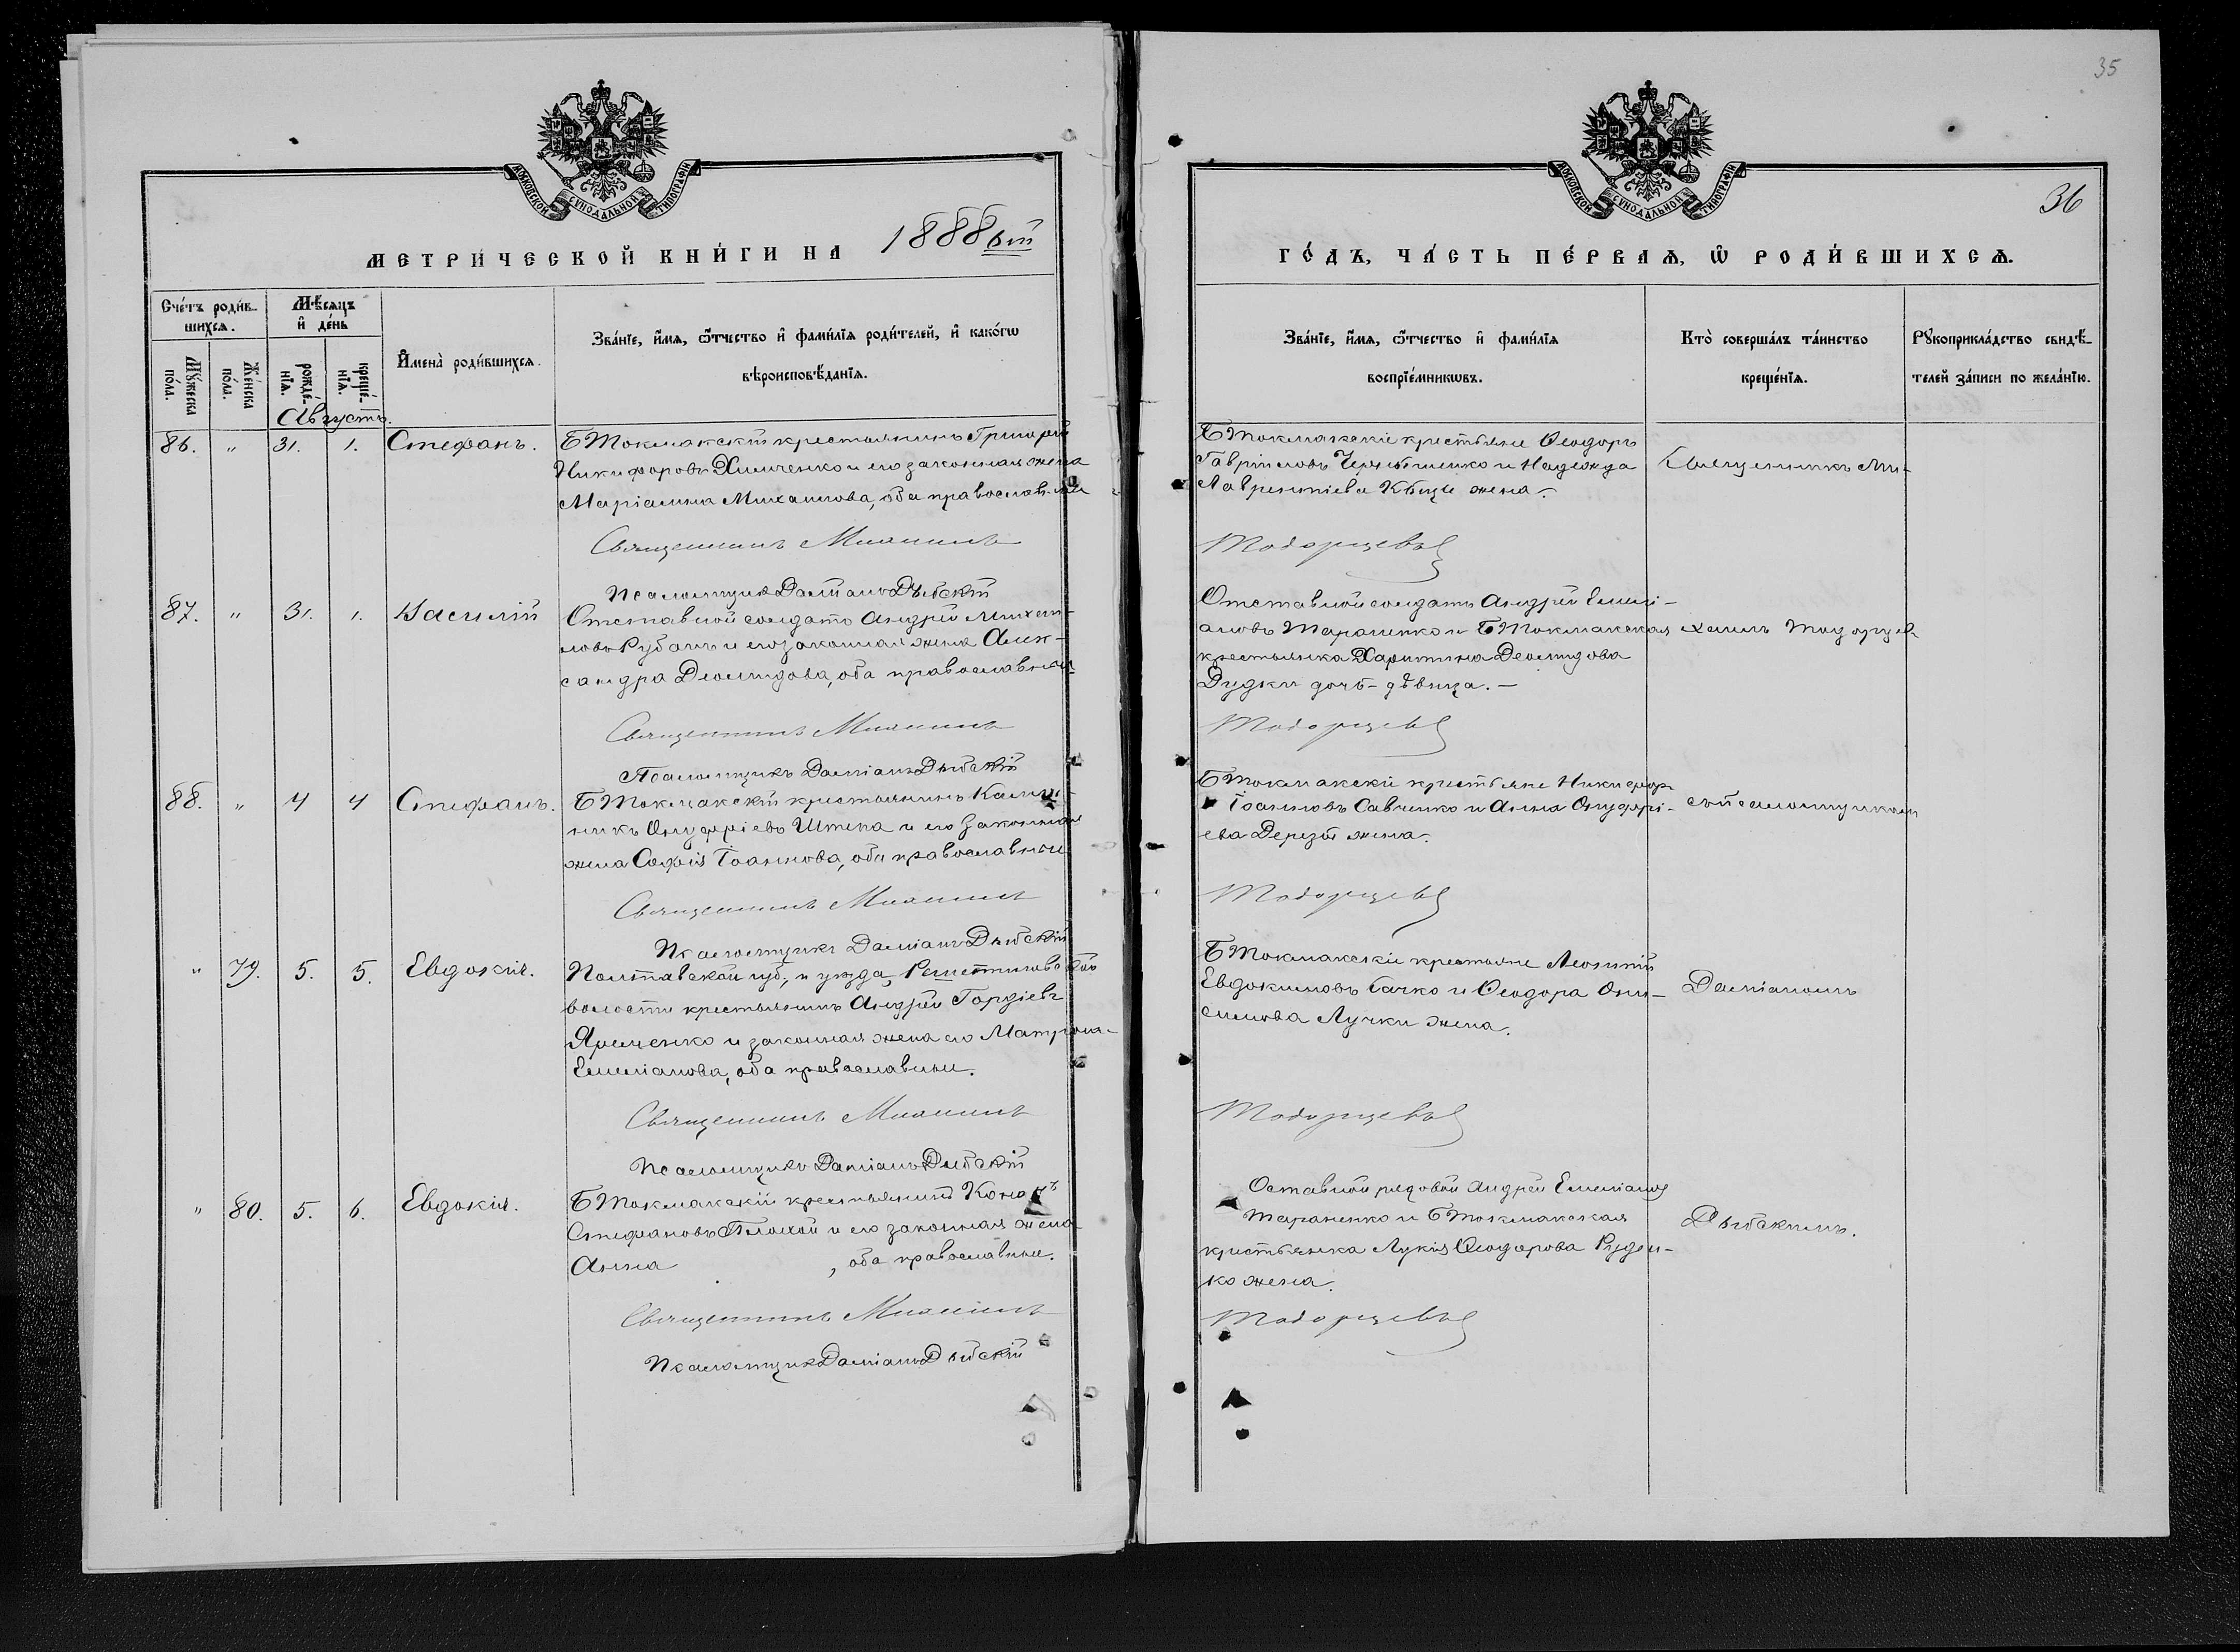 35
МОСКОВСКОЙ СѴНОДАЛЬНОЙ ТИПОГРАФІИ
МЕТРИ́ЧЕСКОЙ КНИ́ГИ НА 1888 ой
Сче́тъ роди́в-
шихся.
Мѣ́сяцъ
и҆ де́нь
Мꙋ́жеска
по́ла.
Же́нска
по́ла.
рожде́-
нїя.
креще́-
нїя.
И҆мена̀ роди́вшихся.
Зва́нїе, и҆́мя, ѻ҆́тчество и҆ фами́лїя роди́телей, и҆ како́гѡ
вѣроисповѣ́данїя.
Августъ.
86. " 31. 1. Стефанъ.
БТокмакскій крестьянинъ Григорій
Никифоровъ Химченко и его законная жена
Маріамна Михаилова, оба православные
Священникъ Михаилъ
Псаломщикъ Даміанъ Дыбскій
87. " 31. 1. Василій
Отставной солдатъ Андрей Михаи-
ловъ Рубанъ и его законная жена Алек-
сандра Деомидова, оба православные
Священникъ Михаилъ
Псаломщикъ Даміанъ Дыбскій
88. " 4 4 Стефанъ.
БТокмакскій крестьянинъ Калин-
никъ Онуфріевъ Штепа и его законная
жена Софія Іоаннова, оба православные
Священникъ Михаилъ
Псаломщикъ Даміанъ Дыбскій
" 79. 5. 5. Евдокія.
Полтавской губ., и уѣзда, Решетиловской
волости крестьянинъ Андрей Гордіевъ
Яременко и законная жена его Матрона
Емеліанова, оба православные.
Священникъ Михаилъ
Псаломщикъ Даміанъ Дыбскій
" 80. 5. 6. Евдокія.
БТокмакскій крестьянинъ Кононъ
Стефановъ Плохой и его законная жена
Анна , оба православные.
Священникъ Михаилъ
Псаломщикъ Даміанъ Дыбскій
МОСКОВСКОЙ СѴНОДАЛЬНОЙ ТИПОГРАФІИ
36
ГО́ДЪ, ЧА́СТЬ ПЕ́РВАЯ, Ѡ҆ РОДИ́ВШИХСЯ.
Зва́нїе, и҆́мя, ѻ҆́тчество и҆ фами́лїя
воспрїе́мникѡвъ.
Кто̀ соверша́лъ та́инство
креще́нїя.
Рꙋкоприкла́дство свидѣ́-
телей за́писи по жела́нїю.
БТокмакскіе крестьяне Ѳеодоръ
Гавріиловъ и Надежда
Лаврентіева жена.
Священникъ Ми-
Тодорцевъ
Отставной солдатъ Андрей Емелі-
ановъ Тараненко и БТокмакская
крестьянка Харитина Деомидова
Дудки дочь-дѣвица.
хаилъ Тодорцев
Тодорцевъ
БТокмакскіе крестьяне Никифоръ
Іоанновъ Савченко и Анна Онуфрі-
ева Дерезы жена.
съ псаломщикомъ
Тодорцевъ
БТокмакскіе крестьяне Леонтій
Евдокимовъ Бачко и Ѳеодора Они-
симова Лучки жена.
Даміаномъ
Тодорцевъ
Оставной рядовой Андрей Емеліановъ
Тараненко и БТокмакская
крестьянка Лукія Ѳеодорова Руден-
ко жена.
Дыбскимъ.
Тодорцевъ